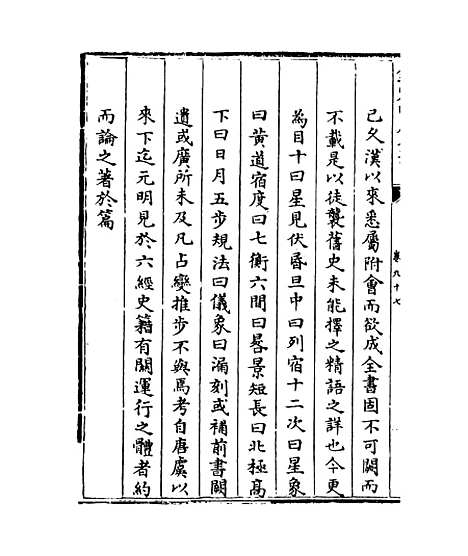 已久漢以來悉屬附會而欲成全書固不可闕而
不載是以徒襲舊史未能擇之精語之詳也今更
為目十曰星見伏昏旦中曰列宿十二次曰星象
曰黄道宿度曰七衡六間曰晷景短長曰北極高
下曰日月五步規法曰儀象曰漏刻或補前書闕
遺或廣所未及凡占變推步不與焉考自唐虞以
來下迄元明見於六經史籍有關運行之體者約
而論之著於篇
卷九十七